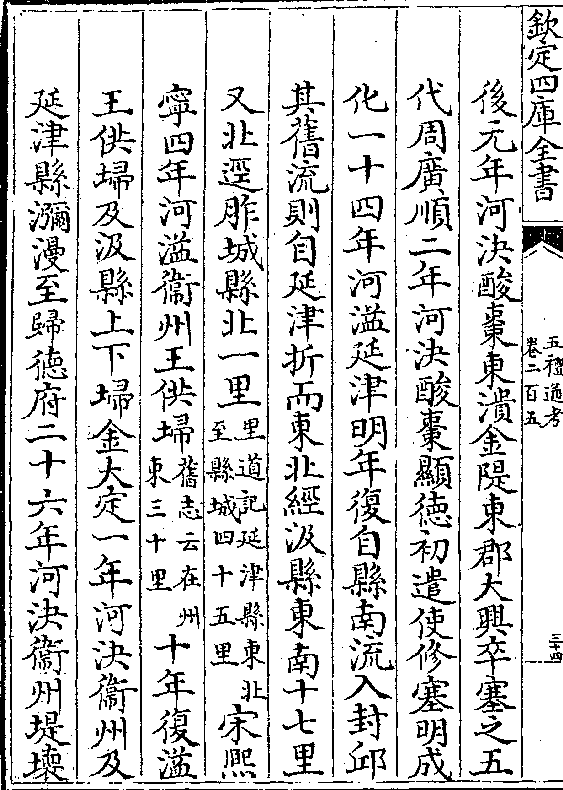 欽定四庫全書
五禮通考
卷二百五
三十四
後元年河決酸棗東潰金隄東郡大興卒塞之五
代周廣順二年河決酸棗顯德初遣使修塞明成
化一十四年河溢延津明年復自縣南流入封邱
其舊流則自延津折而東北經汲縣東南十七里
又北逕胙城縣北一里里道記延津縣東北至縣城四十五里宋熙
寧四年河溢衞州王供埽舊志云在州東三十里十年復溢
王供埽及汲縣上下埽金大定一年河決衞州及
延津縣瀰漫至歸德府二十六年河決衞州堤壞